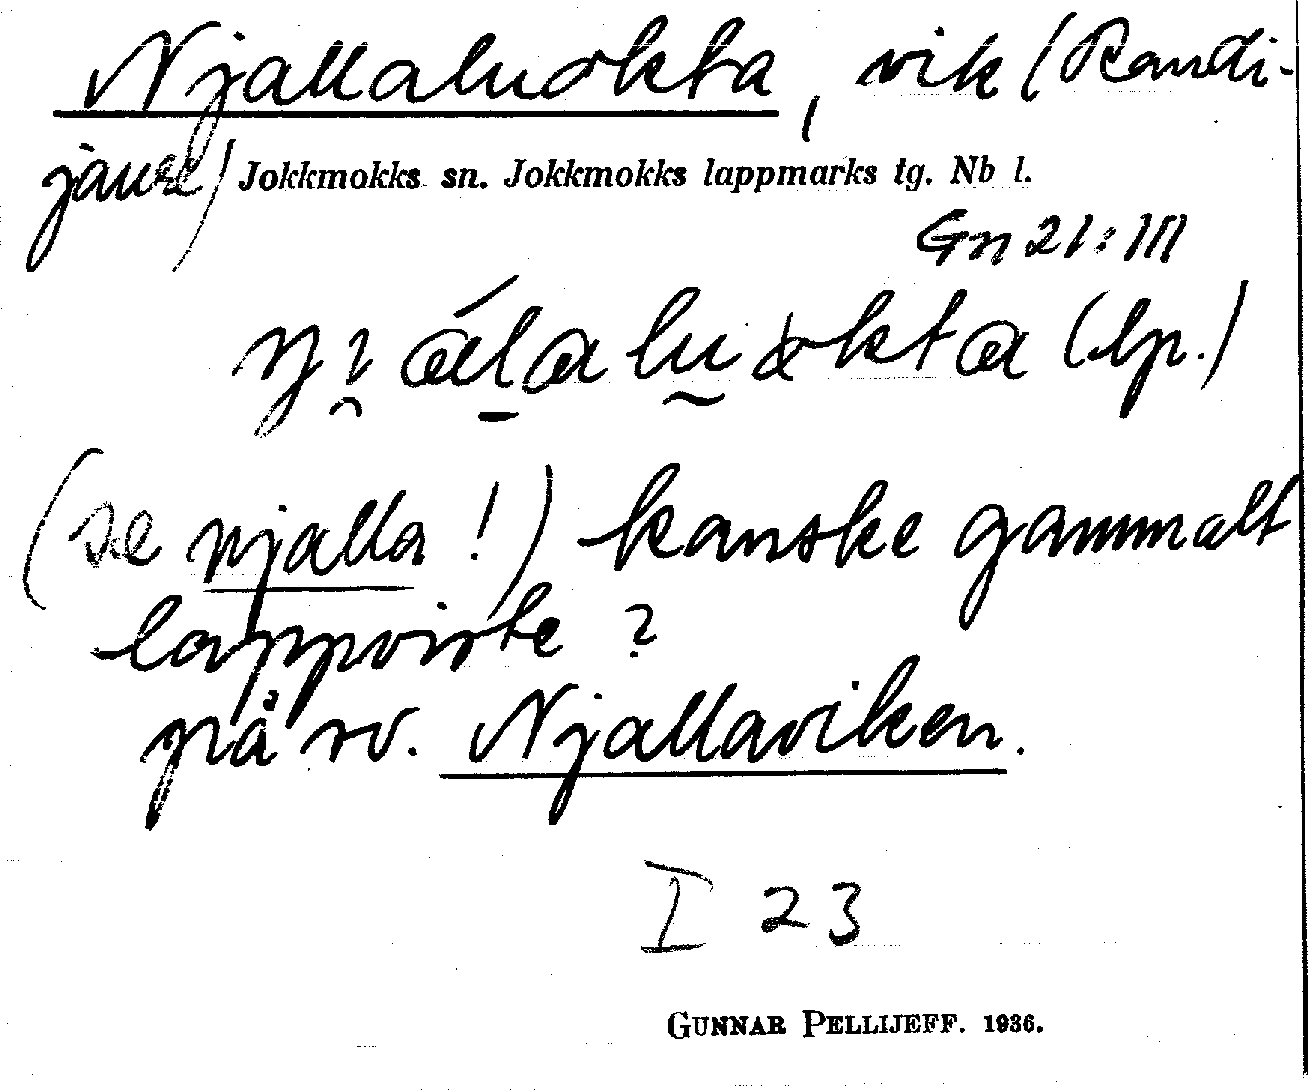 Njallaluokta, vik (Randi-
jaure) Jokkmokks sn. Jokkmokks lappmarks tg. Nb l.
Gn 21:III
ŋi̯álaluokta (lp.)
(se njalla!) kanske gammalt
lappviste?
på sv. Njallaviken.
I 23
GUNNAR PELLIJEFF. 1936.